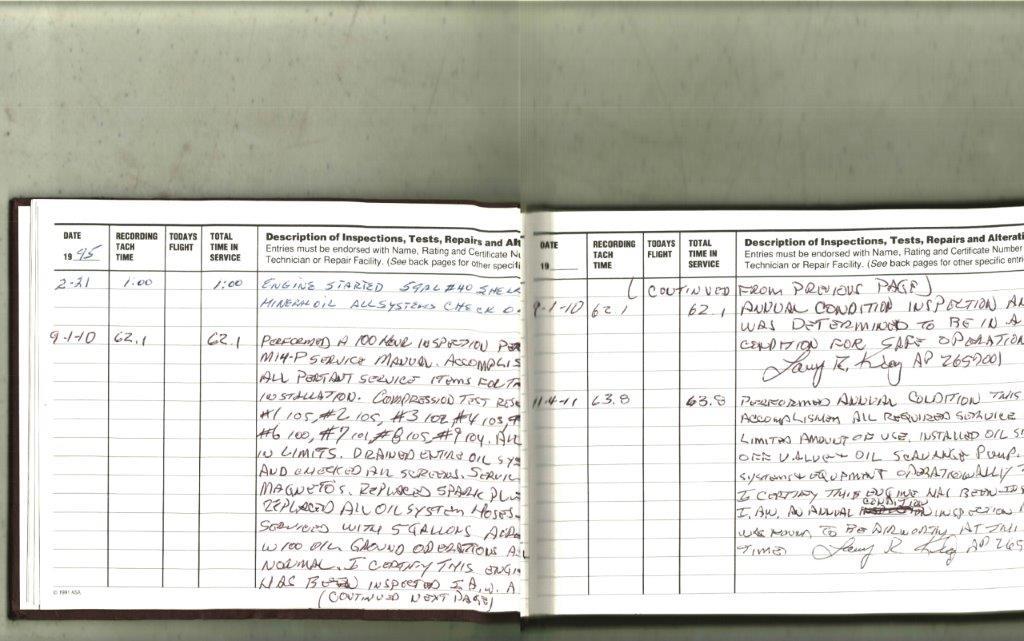 DATE
19 95
RECORDING TACH TIME
TODAYS FLIGHT
TOTAL TIME IN SERVICE
Description of Inspections, Tests, Repairs and
Entries must be endorsed with Name, Rating and Certificate
Technician or Repair Facility. (See back pages for other
2-21 1:00 1:00 ENGINE STARTED 5GAL #40
MINERAL OIL ALL SYSTEMS CHECK
9-1-10 62.1 62.1 PERFORMED A 100 HOUR INSPECTION
M14-P SERVICE MANUAL.
ALL PERTANT SERVICE ITEMS FOR
INSTALLATION. COMPRESSION TEST
#1 105, #2 105, #3 102, #4 105,
#6 100, #7 101, #8 105, #9 104. ALL
IN LIMITS. DRAINED ENTIRE OIL
AND CHECKED ALL SCREENS.
MAGNETOS. REPLACED SPARK
REPLACED ALL OIL SYSTEM HOSES.
SERVICED WITH 5 GALLONS
W100 OIL GROUND OPERATIONS
NORMAL. I CERTIFY THIS
HAS BEEN INSPECTED I.A.W. A
(CONTINUED NEXT PAGE)
© 1991 ASA
DATE
19
RECORDING TACH TIME
TODAYS FLIGHT
TOTAL TIME IN SERVICE
Description of Inspections, Tests, Repairs and
Entries must be endorsed with Name, Rating and Certificate Number
Technician or Repair Facility. (See back pages for other specific
(CONTINUED FROM PREVIOUS PAGE)
9-1-10 62.1 62.1 ANNUAL CONDITION INSPECTION
WAS DETERMINED TO BE IN A
CONDITION FOR SAFE OPERATION
Larry R. AP 2657001
11-4-11 63.8 63.8 PERFORMED ANNUAL CONDITION THIS
ALL REQUIRED SERVICE
LIMITED AMOUNT OF USE. INSTALLED OIL
OFF VALVE & OIL SCAVANGE PUMP.
SYSTEMS & EQUIPMENT OPERATIONALLY
I CERTIFY THIS ENGINE HAS BEEN
I.A.W. AN ANNUAL CONDITION INSPECTION
WAS FOUND TO BE AIRWORTHY AT THIS
TIME. Larry R. AP 265